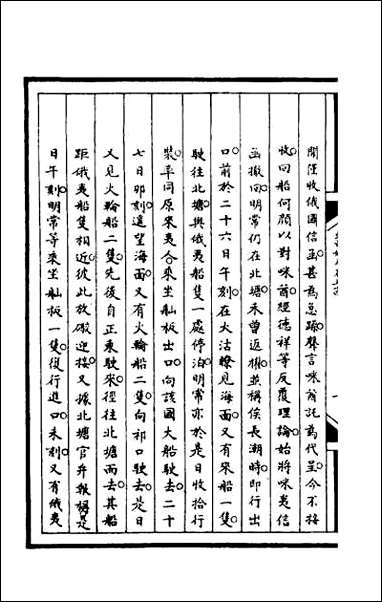 開隆收俄國信函甚為急躁聲言咪酋託為代呈今不接
收回船何顏以對咪酋經德祥等反覆理論始將咪夷信
函撤回明常仍在北塘未曾返櫂並稱俟長潮時即行出
口前於二十六日午刻在大沽瞭見海面又有來船一隻
駛往北塘與俄夷船隻一處停泊明常亦於是日收拾行
裝率同原來夷合乘坐舢板出口向該國大船駛去二十
七日卯刻遙望海面又有火輪船二隻向祁口駛去是日
又見火輪船二隻先後自正東駛來徑往北塘而去其船
距俄夷船隻相近彼此放礮迎接又據北塘官弁報稱是
日午刻明常等乘坐舢板一隻復行進口未刻又有俄夷